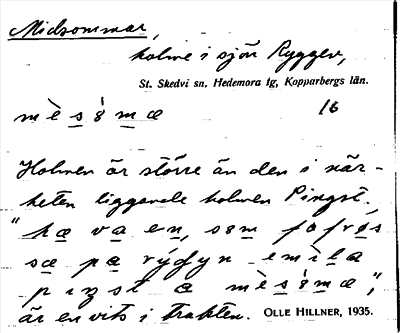 Midsommar,
holme i sjön Ryggen,
St. Skedvi sn, Hedemora tg, Kopparbergs län.
16
mè s å mæ
Holmen är större än den i när-
heten liggande holmen Pingst.
"hæ va en, sem fofrǿs
sæ pa rýgyn emila
pizst a mèsåmæ",
är en vits i trakten. OLLE HILLNER, 1935.